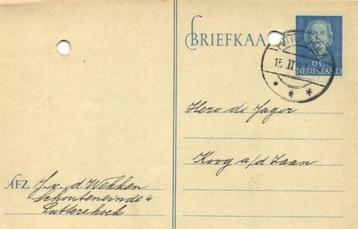 BRIEFKAA
15 II
0 C.
NEDERLAND
Hero de Jager
Koog a/d Zaan
AFZ. J. v. d. Wekken
Schouteneinde
Lutterhoek